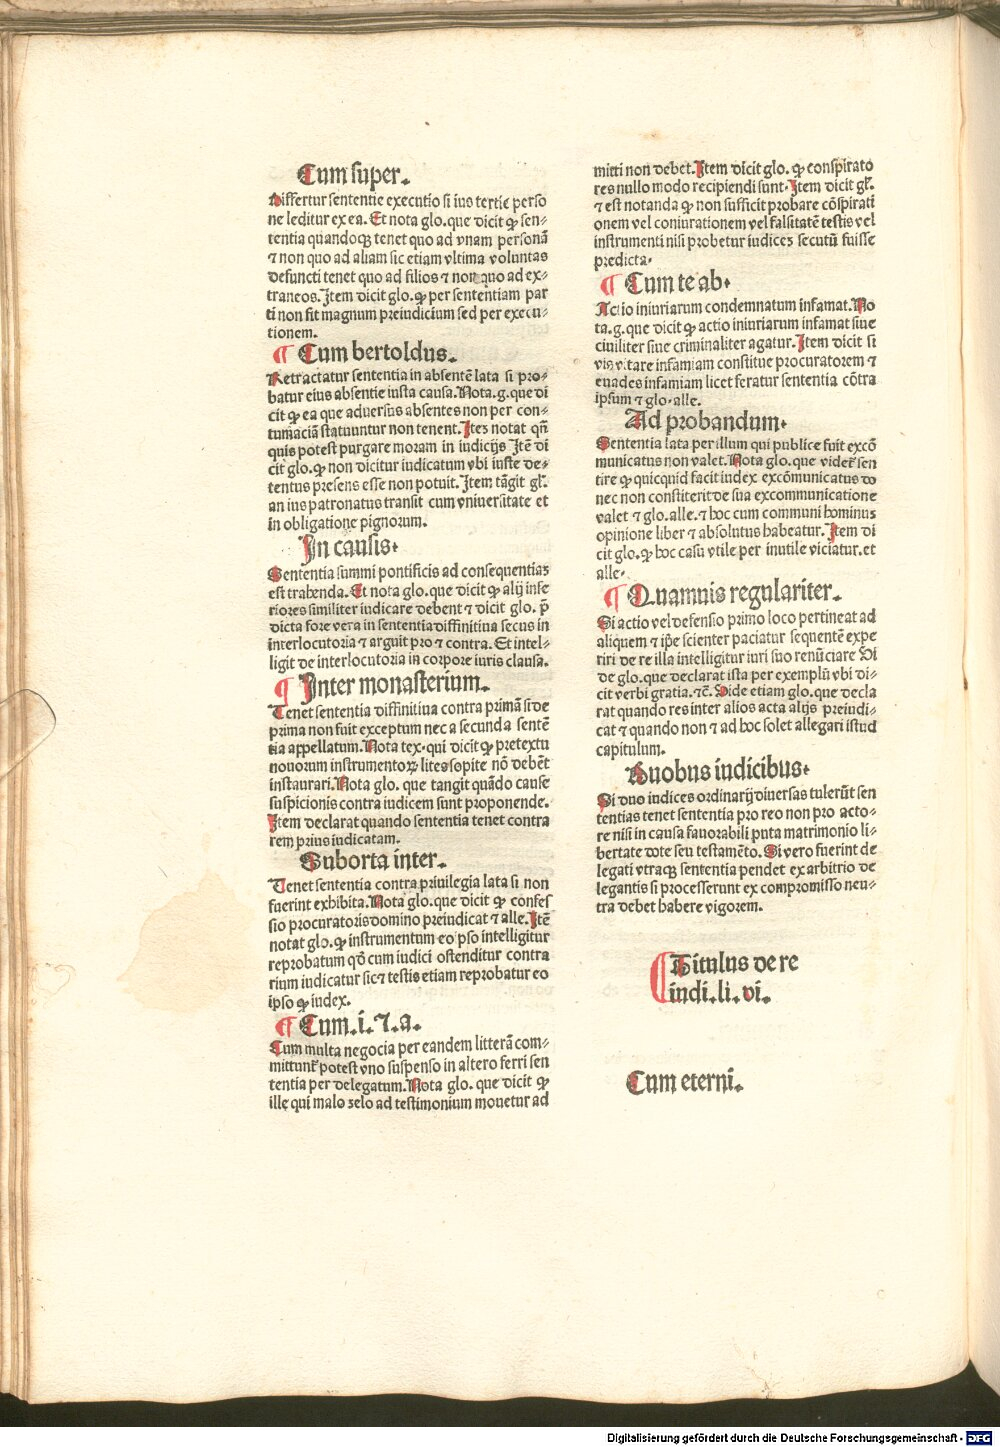 Cum super.
Differtur sententie executio si ius tertie perso
ne leditur ex ea. Et nota glo. que dicit ꝙ sen⸗
tentia quandoqꝫ tenet quo ad vnam personā
⁊ non quo ad aliam sic etiam vltima voluntas
defuncti tenet quo ad filios ⁊ non quo ad ex⸗
traneos. Item dicit glo. ꝙ per sententiam par
ti non fit magnum preiudicium sed per execu⸗
tionem.
¶ Cum bertoldus.
Retractatur sententia in absentē lata si pro⸗
batur eius absentie iusta causa. Nota. g. que di
cit ꝙ ea que aduersus absentes non per con⸗
tumaciā statuuntur non tenent. Itē notat qn̄
quis potest purgare moram in iudicijs Itē di
cit glo. ꝙ non dicitur iudicatum vbi iuste de⸗
tentus presens esse non potuit. Item tāgit gl.
an ius patronatus transit cum vniuersitate et
in obligatione pignorum.
In causis.
Sententia summi pontificis ad consequentias
est trahenda. Et nota glo. que dicit ꝙ alij infe
riores similiter iudicare debent ⁊ dicit glo. p̄
dicta fore vera in sententia diffinitiua secus in
interlocutoria ⁊ arguit pro ⁊ contra. Et intel⸗
ligit de interlocutoria in corpore iuris clausa.
¶ Inter monasterium.
Tenet sententia diffinitiua contra primā si de
prima non fuit exceptum nec a secunda sentē
tia appellatum. Nota tex. qui dicit ꝙ pretextu
nouorum instrumentoꝝ lites sopite nō debēt
instaurari. Nota glo. que tangit quādo cause
suspicionis contra iudicem sunt proponende.
Item declarat quando sententia tenet contra
rem prius iudicatam.
Suborta inter.
Tenet sententia contra priuilegia lata si non
fuerint exhibita. Nota glo. que dicit ꝙ confes
sio procuratoris domino preiudicat ⁊ alle. Itē
notat glo. ꝙ instrumentum eo pso intelligitur
reprobatum qd̄ cum iudici ostenditur contra
rium iudicatur sic ⁊ testis etiam reprobatur eo
ipso ꝙ iudex.
¶ Cum. i. ⁊. a.
Cum multa negocia per eandem litterā com⸗
mittunt᷑ potest vno suspenso in altero ferri sen
tentia per delegatum. Nota glo. que dicit ꝙ
ille qui malo zelo ad testimonium mouetur ad
mitti non debet. Item dicit glo. ꝙ conspirato
res nullo modo recipiendi sunt. Item dicit gl.
⁊ est notanda ꝙ non sufficit probare cōspirati
onem vel coniurationem vel falsitatē testis vel
instrumenti nisi probetur iudices secutū fuisse
predicta.
¶ Cum te ab.
Actio iniuriarum condemnatum infamat. No
ta. g. que dicit ꝙ actio iniuriarum infamat siue
ciuiliter siue criminaliter agatur. Item dicit si
vis vitare infamiam constitue procuratorem ⁊
euades infamiam licet feratur sententia cōtra
ipsum ⁊ glo. alle.
Ad probandum.
Sententia lata per illum qui publice fuit excō
municatus non valet. Nota glo. que videt᷑ sen
tire ꝙ quicquid facit iudex excōmunicatus do
nec non constiterit de sua excommunicatione
valet ⁊ glo. alle. ⁊ hoc cum communi hominus
opinione liber ⁊ absolutus habeatur. Item di
cit glo. ꝙ hoc casu vtile per inutile viciatur. et
alle.
¶ Quamuis regulariter.
Si actio vel defensio primo loco pertineat ad
aliquem ⁊ ip̄e scienter paciatur sequentē expe
riri de re illa intelligitur iuri suo renūciare Vi
de glo. que declarat ista per exemplū vbi di⸗
cit verbi gratia. ⁊c̄. Vide etiam glo. que decla
rat quando res inter alios acta alijs preiudi⸗
cat ⁊ quando non ⁊ ad hoc solet allegari istud
capitulum.
Duobus iudicibus.
Si duo iudices ordinarij diuersas tulerūt sen
tentias tenet sententia pro reo non pro acto⸗
re nisi in causa fauorabili puta matrimonio li⸗
bertate dote seu testamēto. Si vero fuerint de
legati vtraqꝫ sententia pendet ex arbitrio de
legantis si processerunt ex compromisso neu⸗
tra debet habere vigorem.
¶ Titulus de re
iudi. li. vi.
Cum eterni.
Digitalisierung gefördert durch die Deutsche Forschungsgemeinschaft - DFG